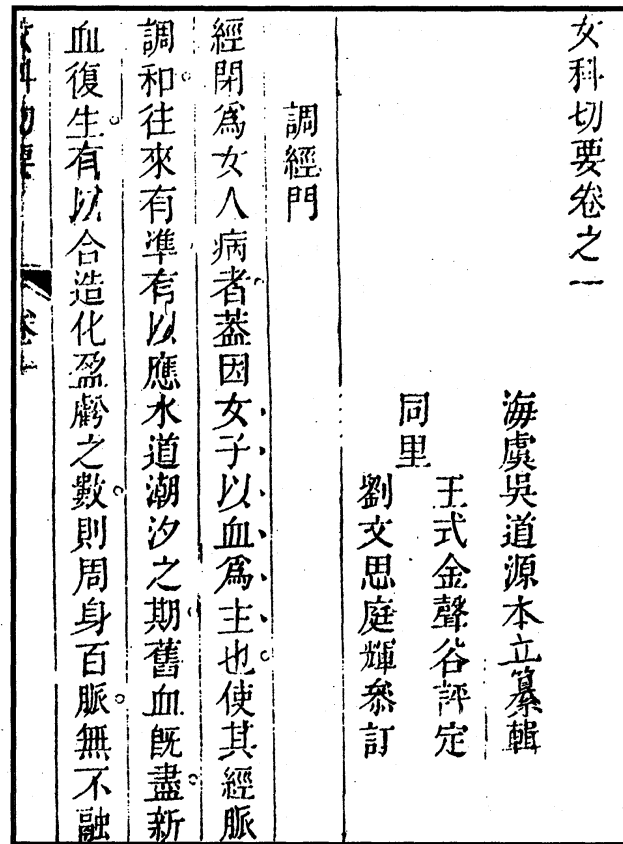 女科切要卷之一
海虞吳道源本立纂輯
王式金聲谷評定
同里
劉文思庭輝叅訂
調經門
經閉爲女人病者蓋因女子以血爲主也使其經脈
調和往來有準有以應水道潮汐之期舊血既盡新
血復生有以合造化盈虧之數則周身百脈無不融
女科切要 卷一